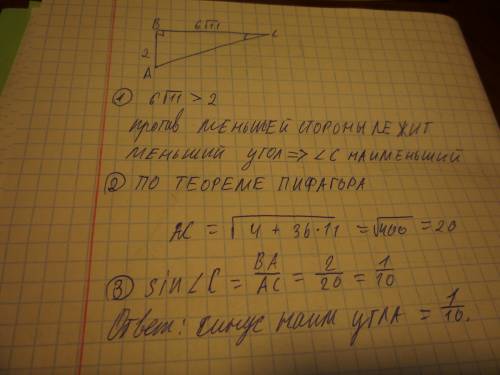 B 6√11 C
2
A
① 6√11 > 2
против меньшей стороны лежит
меньший угол => ∠C наименьший
② по теореме Пифагора
AC = √4 + 36·11 = √400 = 20
③ sin∠C = BA/AC = 2/20 = 1/10
Ответ: синус наим угла = 1/10.